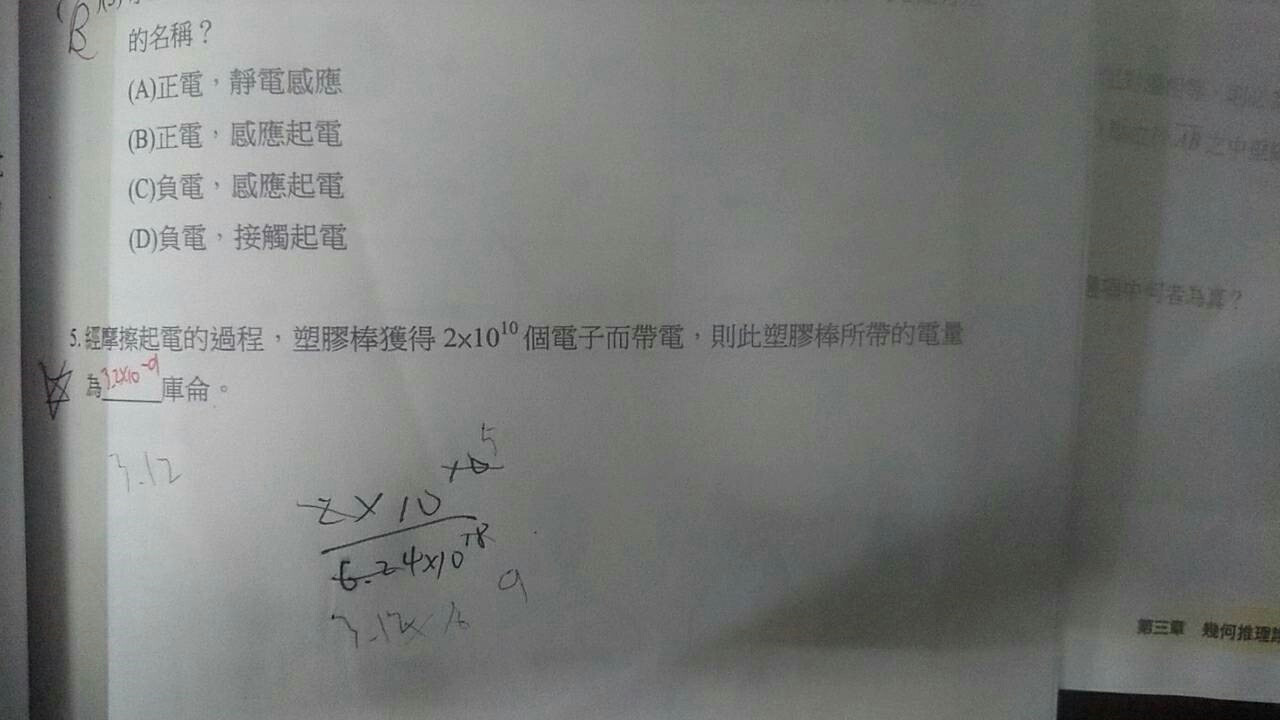 B
的名稱？
(A)正電，靜電感應
(B)正電，感應起電
(C)負電，感應起電
(D)負電，接觸起電
5. 經摩擦起電的過程，塑膠棒獲得 2×10¹⁰ 個電子而帶電，則此塑膠棒所帶的電量
為3.2×10⁻⁹庫侖。
3.12
5
2×10
6.24×10¹⁸
9
3.12×
AB 之中垂
何者為真？
第三章 幾何推理